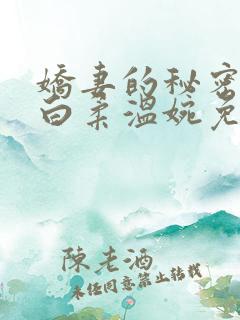 嬌妻的秘密
白柔溫婉免
陳老酒
未經同意禁止轉載